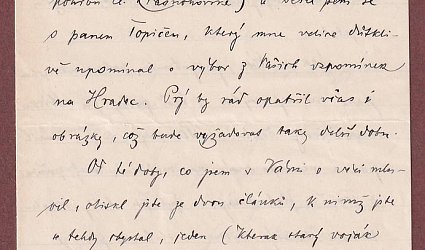 s panem Topičem, který mne velice důtkli-
vě upomínal o výbor z Vašich vzpomínek
na Hradec. Prý by rád opatřil včas i
obrázky, což bude vyžadovat také delší dobu.
Od té doby, co jsem s Vámi o věci mlu-
vil, získal jste ze dvou článků, k nimž jste
tehdy chystal, jeden (Kterak starý voják